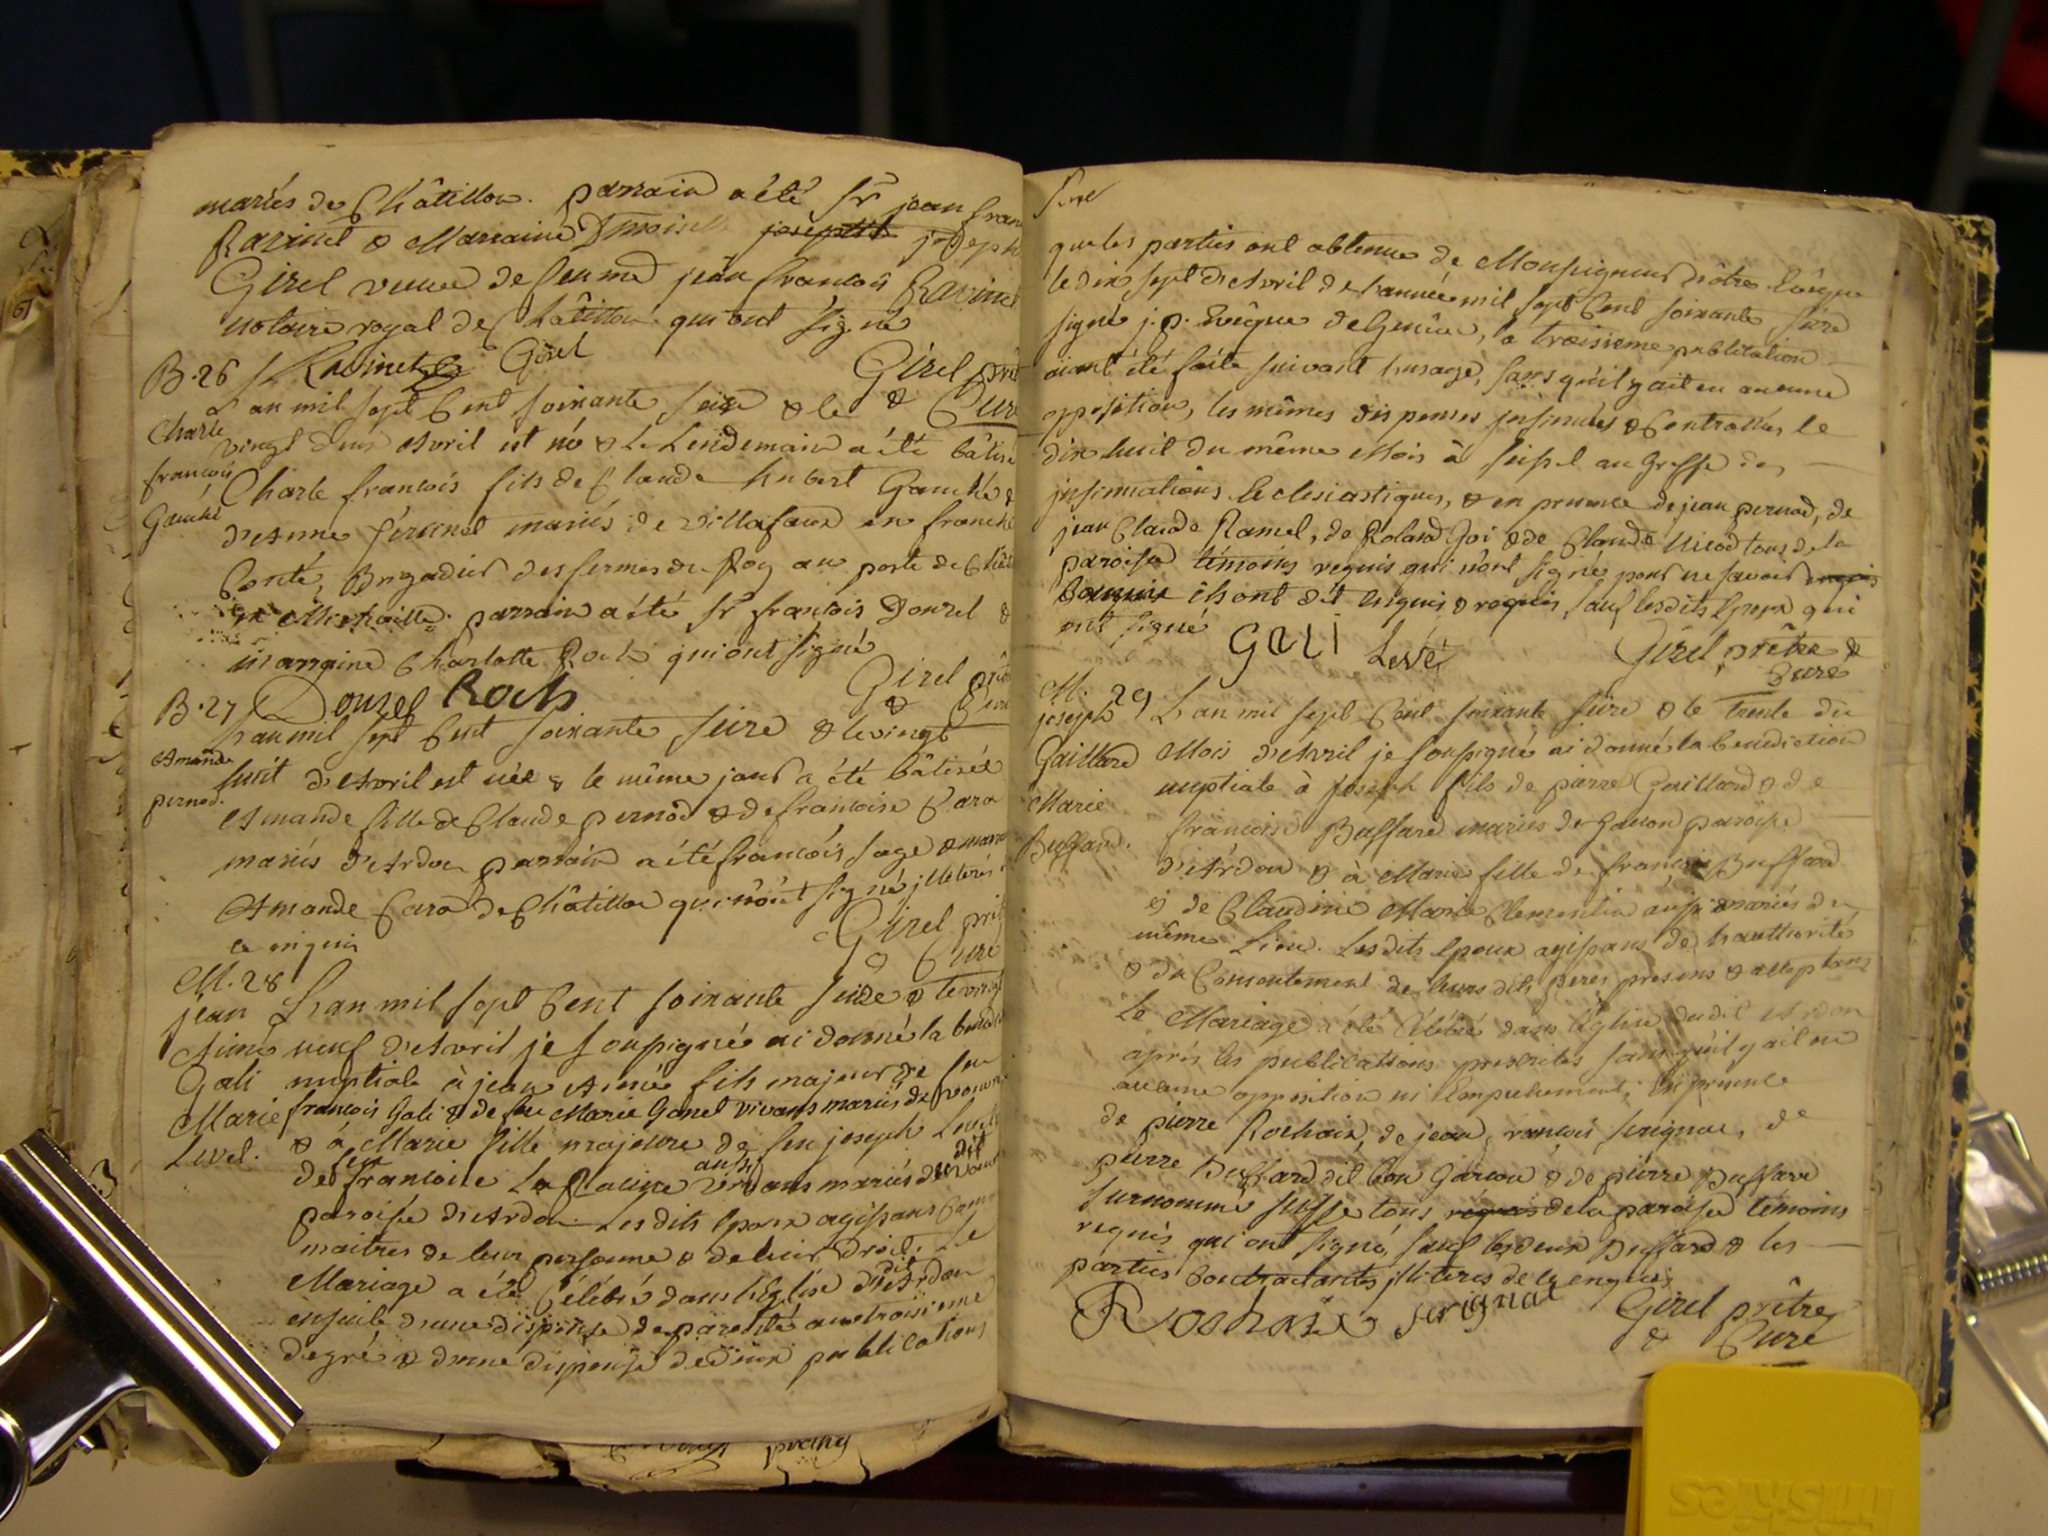 mariés de Châtillon. parrain a été Sr jean fran
Ravinet & Marraine Dmoiselle joseph
Girel veuve de feu me jean francois Ravinet
notaire royal de Châtillon qui ont signé
Ravinet Girel Girel prê
& Curé
B. 26
Charle
francois
Gauché
L'an mil sept Cent soixante seize & le
vingt deux Avril est né & le Lendemain a été bâtisé
Charle francois fils de Claude hubert Gauché &
d'Anne mariés de Villafans en franche
Conté, Brigadier des fermes du Roy au poste de
en Michaille. parrain a été Sr francois Douzel &
marraine Charlotte Roch qui ont signé
Douzel Roch Girel prê
& Curé
B. 27
Amande
pernod.
L'an mil sept Cent soixante seize & le vingt
huit d'Avril est née & le même jour a été bâtisée
Amande fille de Claude pernod & de francoise Cara
mariés d'Ardon parrain a été francois sage & marr
Amande Cara de Châtillon qui n'ont signé illiterés
ce enquis Girel prê
& Curé
M. 28
jean
Aimé
Gali
Marie
Levet.
L'an mil sept Cent soixante seize & le vingt
neuf d'Avril je soussigné ai donné la bened
nuptiale à jean Aimé fils majeur de feu
francois Gali & de feu Marie Gonet vivans mariés de
& à Marie fille majeure de feu joseph Levet
de feu francoise La Racine aussi vivans mariés de
paroisse d'Ardon. Les dits Epoux agissans comme
maitres de leur personne & de leur droit. Le
Mariage a été Célébré dans l'Eglise dudit Ardon
ensuite d'une dispense de parenté au troisieme
degré & d'une dispense de deux publications
que les parties ont obtenue de Monseigneur nôtre Evêque
le dix sept d'Avril de l'année mil sept Cent soixante seize
signé j. p. Evêque de Genêve, la troisieme publication
aiant été faite suivant l'usage, sans qu'il y ait eu aucune
opposition, les mêmes dispenses insinuées & Controllées le
dix huit du même Mois à seissel au Greffe des
insinuations Ecclesiastiques, & en presence de jean pernod, de
jean Claude Ramel, de Roland Joi & de Claude Nicod tous de la
paroisse témoins requis qui n'ont signé pour ne savoir
ils ont dit enquis & requis, sauf lesdits Epoux qui
ont signé GALI Levet Girel prêtre &
Curé
M. 29
joseph
Gaillard
Marie
Buffard.
L'an mil sept Cent soixante seize & le Trente du
Mois d'Avril je soussigné ai donné la benediction
nuptiale à joseph fils de pierre Gaillard & de
francoise Buffard mariés de Ganon paroisse
d'Ardon & à Marie fille de francois Buffard
& de Claudine Marie Clementin aussi mariés du
même Lieu. Les dits Epoux agissans de l'authorité
& du Consentement de leurs dits peres presens & acceptans
Le Mariage a été Célébré dans l'Eglise dudit Ardon
après les publications prescrites sans qu'il y ait eu
aucune opposition ni Empechement; En presence
de pierre Rochaix, de jean francois serignat, de
pierre Buffard dit bon Garcon & de pierre Buffard
surnommé suisse tous requis de la paroisse temoins
requis qui ont signé, sauf les deux Buffard & les
parties Contractantes illiteres de ce enquis
Roshaix serignat Girel prêtre
& Curé